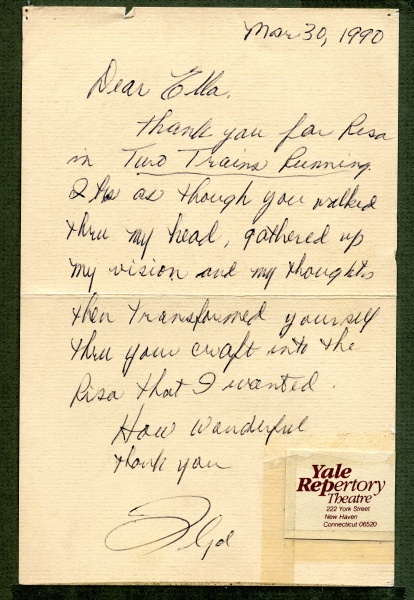 Mar 30, 1990
Dear Ella.
Thank you for Risa
in Two Trains Running.
Its as though you walked
thru my head, gathered up
my vision and my thoughts
then transformed yourself
thru your craft into the
Risa that I wanted.
How wonderful
thank you
Yale
Repertory
Theatre
222 York Street
New Haven
Connecticut 06520